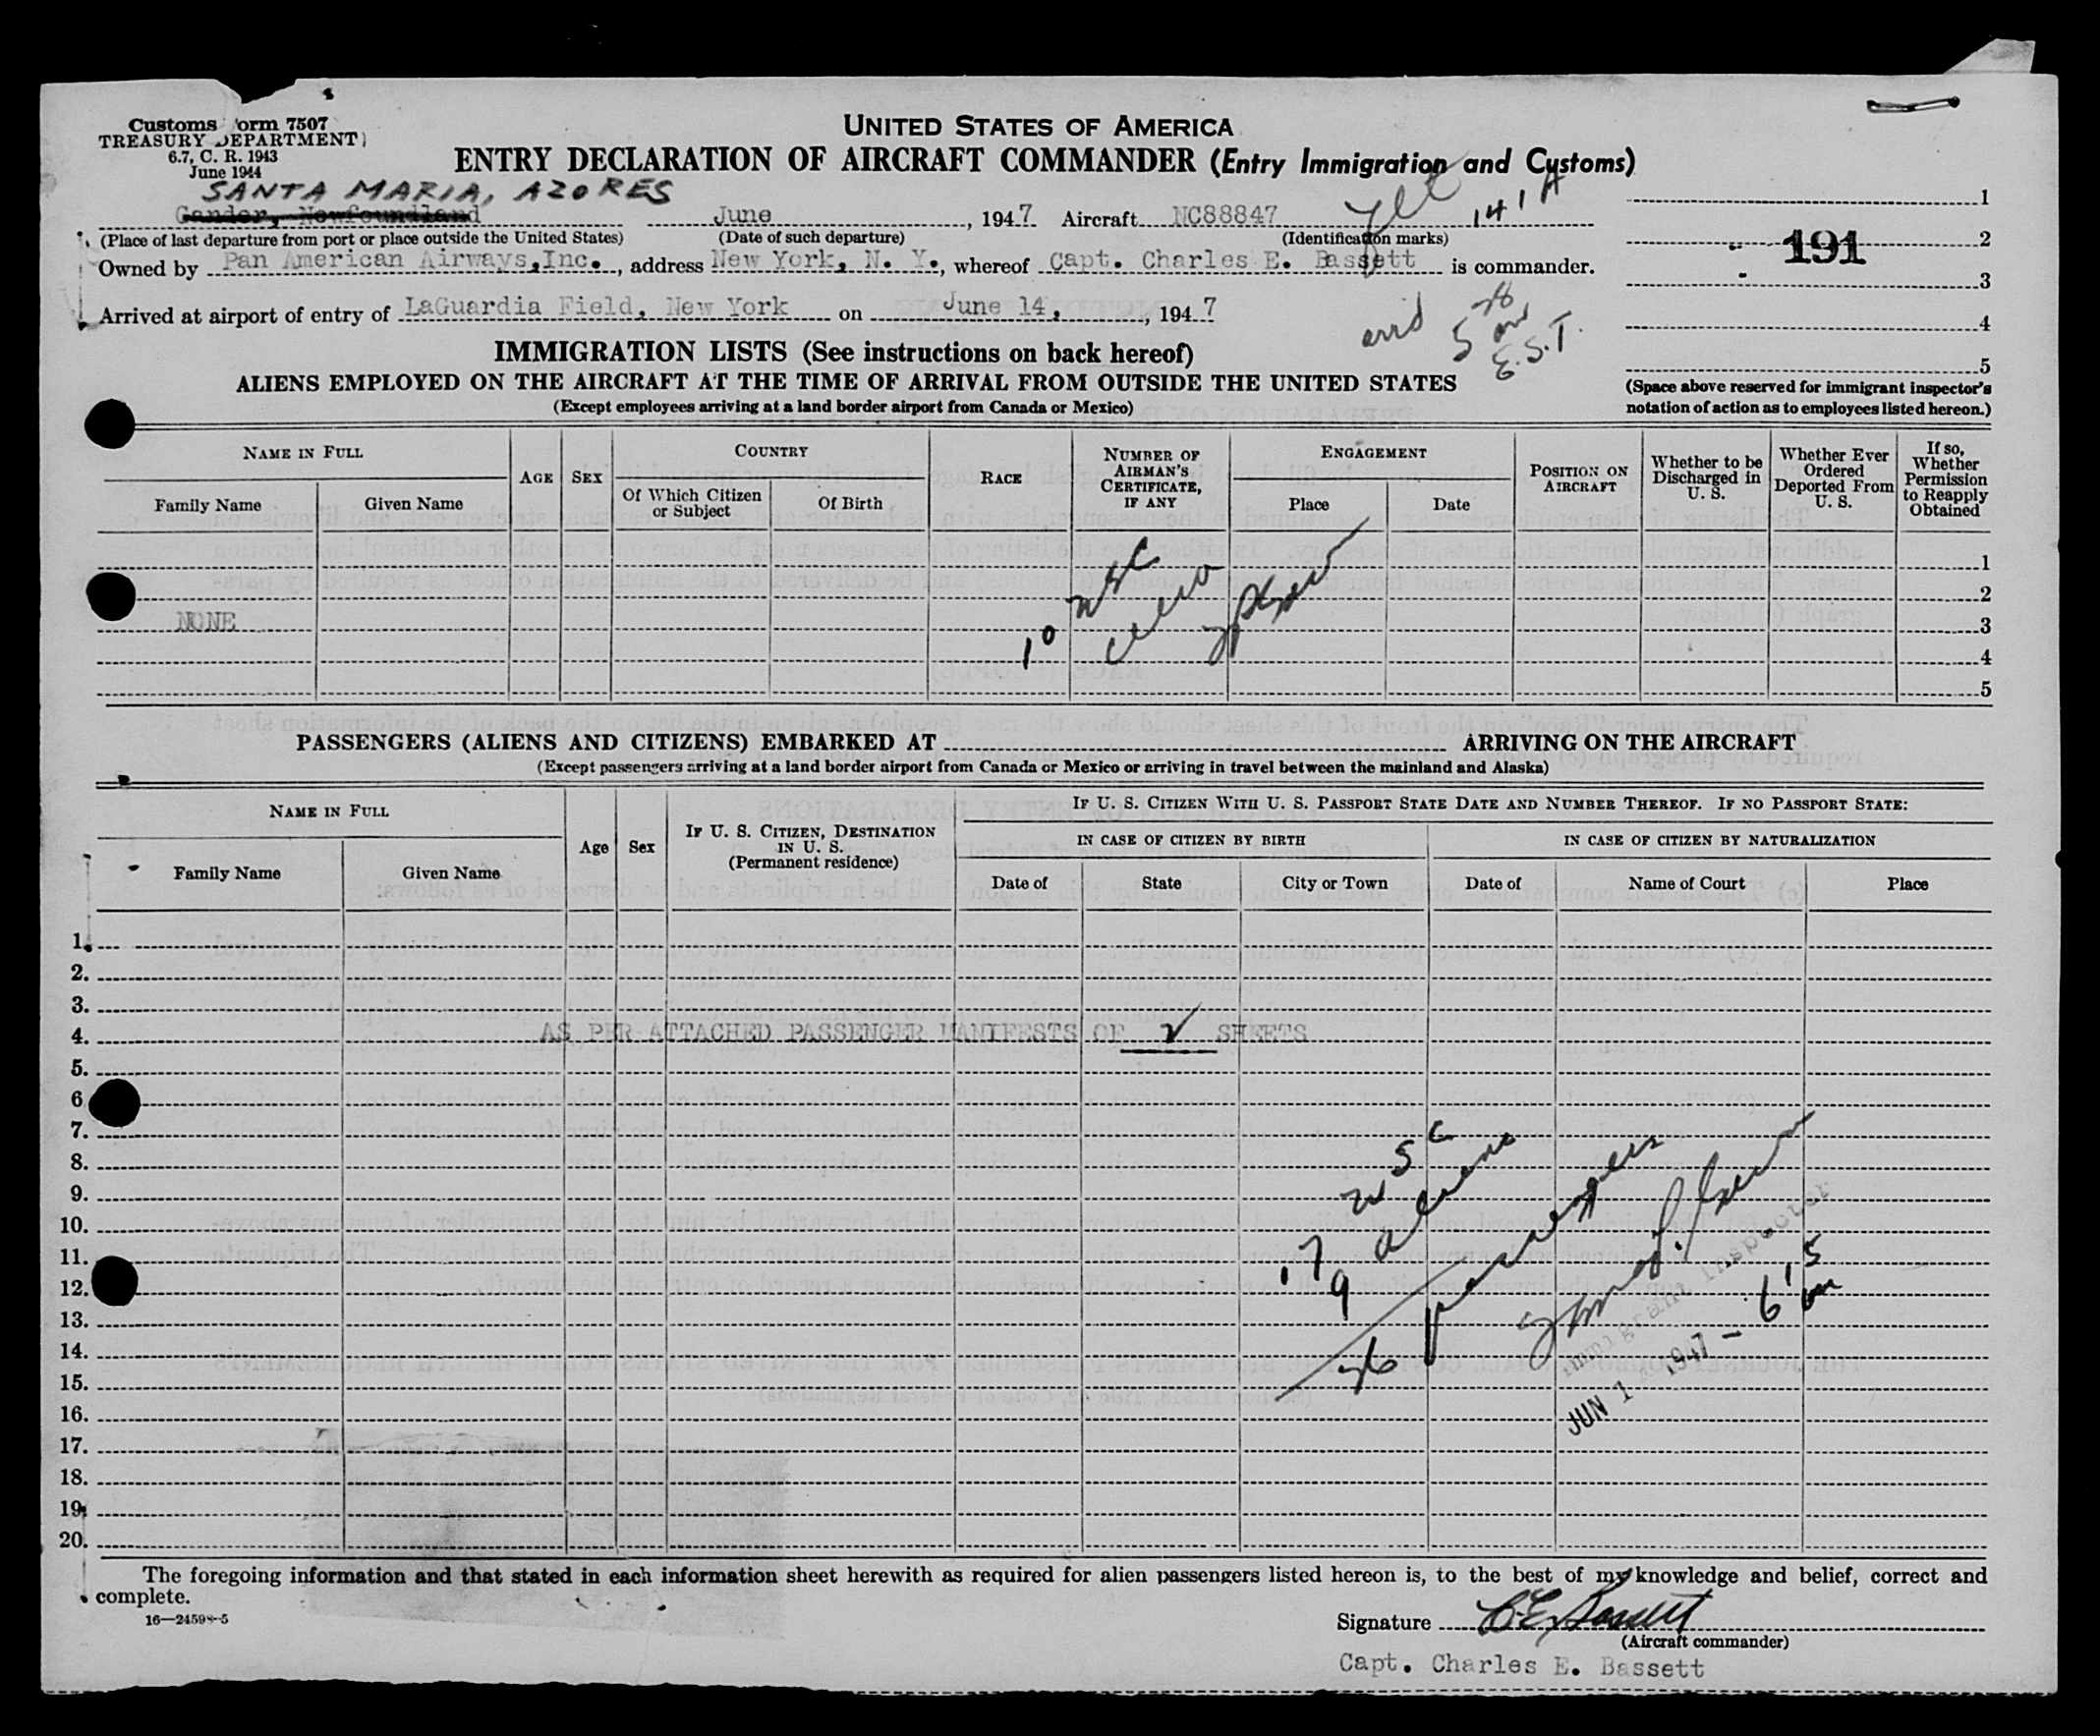 Customs Form 7507
TREASURY DEPARTMENT
6.7, C. R. 1943
June 1944
UNITED STATES OF AMERICA
ENTRY DECLARATION OF AIRCRAFT COMMANDER (Entry Immigration and Customs)
SANTA MARIA, AZORES
Gander, Newfoundland June , 1947 Aircraft NC88847 Flt 141A
(Place of last departure from port or place outside the United States) (Date of such departure) (Identification marks)
Owned by Pan American Airways, Inc. , address New York, N. Y. , whereof Capt. Charles E. Bassett is commander.
Arrived at airport of entry of LaGuardia Field, New York on June 14, , 1947
arrd 5 28 am E.S.T.
1
2
191
3
4
5
(Space above reserved for immigrant inspector's
notation of action as to employees listed hereon.)
IMMIGRATION LISTS (See instructions on back hereof)
ALIENS EMPLOYED ON THE AIRCRAFT AT THE TIME OF ARRIVAL FROM OUTSIDE THE UNITED STATES
(Except employees arriving at a land border airport from Canada or Mexico)
NAME IN FULL
Family Name
Given Name
AGE
SEX
COUNTRY
Of Which Citizen
or Subject
Of Birth
RACE
NUMBER OF
AIRMAN'S
CERTIFICATE,
IF ANY
ENGAGEMENT
Place
Date
POSITION ON
AIRCRAFT
Whether to be
Discharged in
U. S.
Whether Ever
Ordered
Deported From
U. S.
If so,
Whether
Permission
to Reapply
Obtained
1
2
NONE 3
4
5
10 USC
PASSENGERS (ALIENS AND CITIZENS) EMBARKED AT ARRIVING ON THE AIRCRAFT
(Except passengers arriving at a land border airport from Canada or Mexico or arriving in travel between the mainland and Alaska)
NAME IN FULL
Family Name
Given Name
Age
Sex
IF U. S. CITIZEN, DESTINATION
IN U. S.
(Permanent residence)
IF U. S. CITIZEN WITH U. S. PASSPORT STATE DATE AND NUMBER THEREOF. IF NO PASSPORT STATE:
IN CASE OF CITIZEN BY BIRTH
Date of
State
City or Town
IN CASE OF CITIZEN BY NATURALIZATION
Date of
Name of Court
Place
1.
2.
3.
4. AS PER ATTACHED PASSENGER MANIFESTS OF 2 SHEETS
5.
6
7.
8.
9.
10.
11.
12.
13.
14.
15.
16.
17.
18.
19.
20.
17 USC
9 aliens
26 passengers
Immigrant Inspector
JUN 1 1947 - 6 15 am
The foregoing information and that stated in each information sheet herewith as required for alien passengers listed hereon is, to the best of my knowledge and belief, correct and
complete.
16—24598-5
Signature C E Bassett
(Aircraft commander)
Capt. Charles E. Bassett